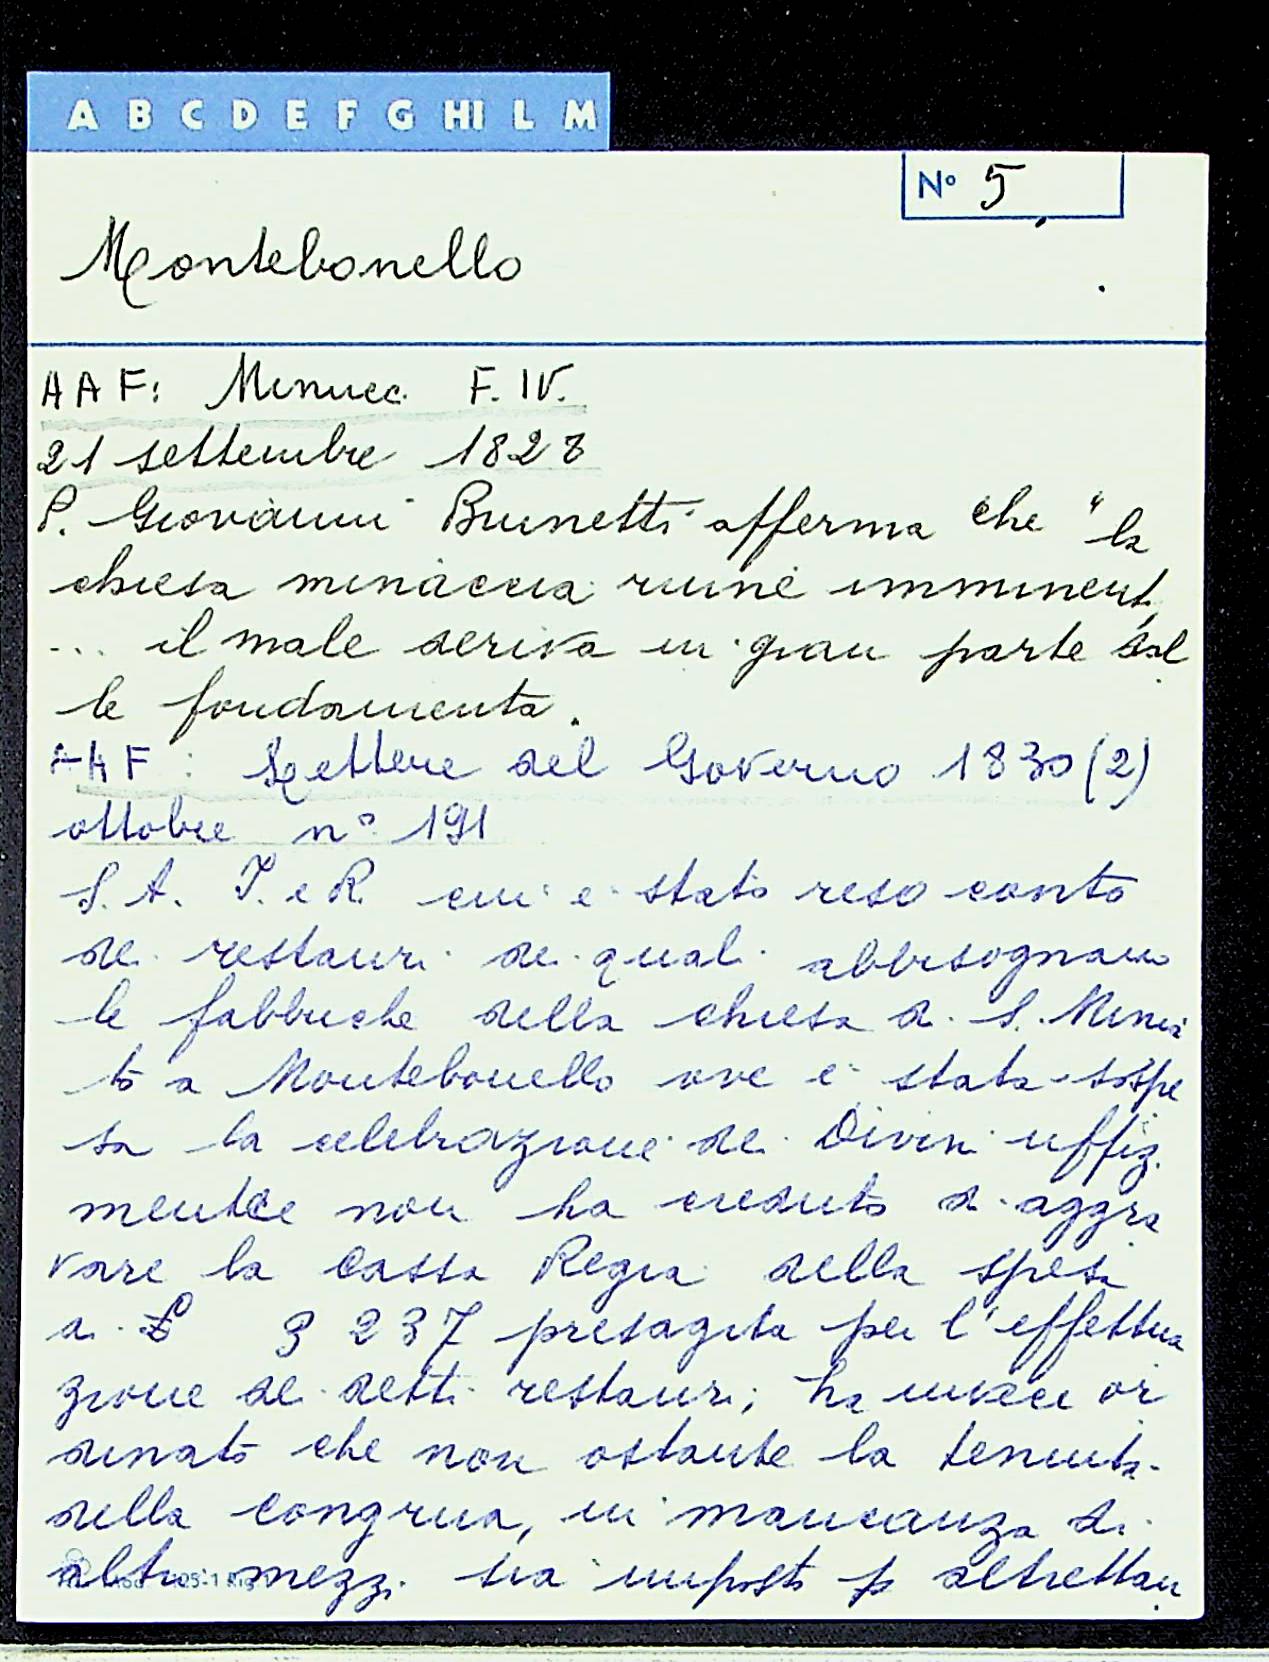 A B C D E F G HI L M
N° 5
Montebonello
AAF: Minucc. F. IV.
21 settembre 1828
P. Giovanni Brunetti afferma che "la
chiesa minaccia ruine imminenti
... il male deriva in gran parte dal
le fondamenta.
AAF: Lettere del Governo 1830 (2)
ottobre n° 191
S. A. I. e R. cui è stato reso conto
dei restauri dei quali abbisognano
le fabbriche della chiesa di S. Minia
to a Montebonello ove è stata sospe
sa la celebrazione dei Divini uffizi
mentre non ha creduto di aggra
vare la Cassa Regia della spesa
di £ 3 237 presagita per l'effettua
zione dei detti restauri; ha invece or
dinato che non ostante la tenuta
della congrua, in mancanza di
altri mezzi sia imposto p altrettan